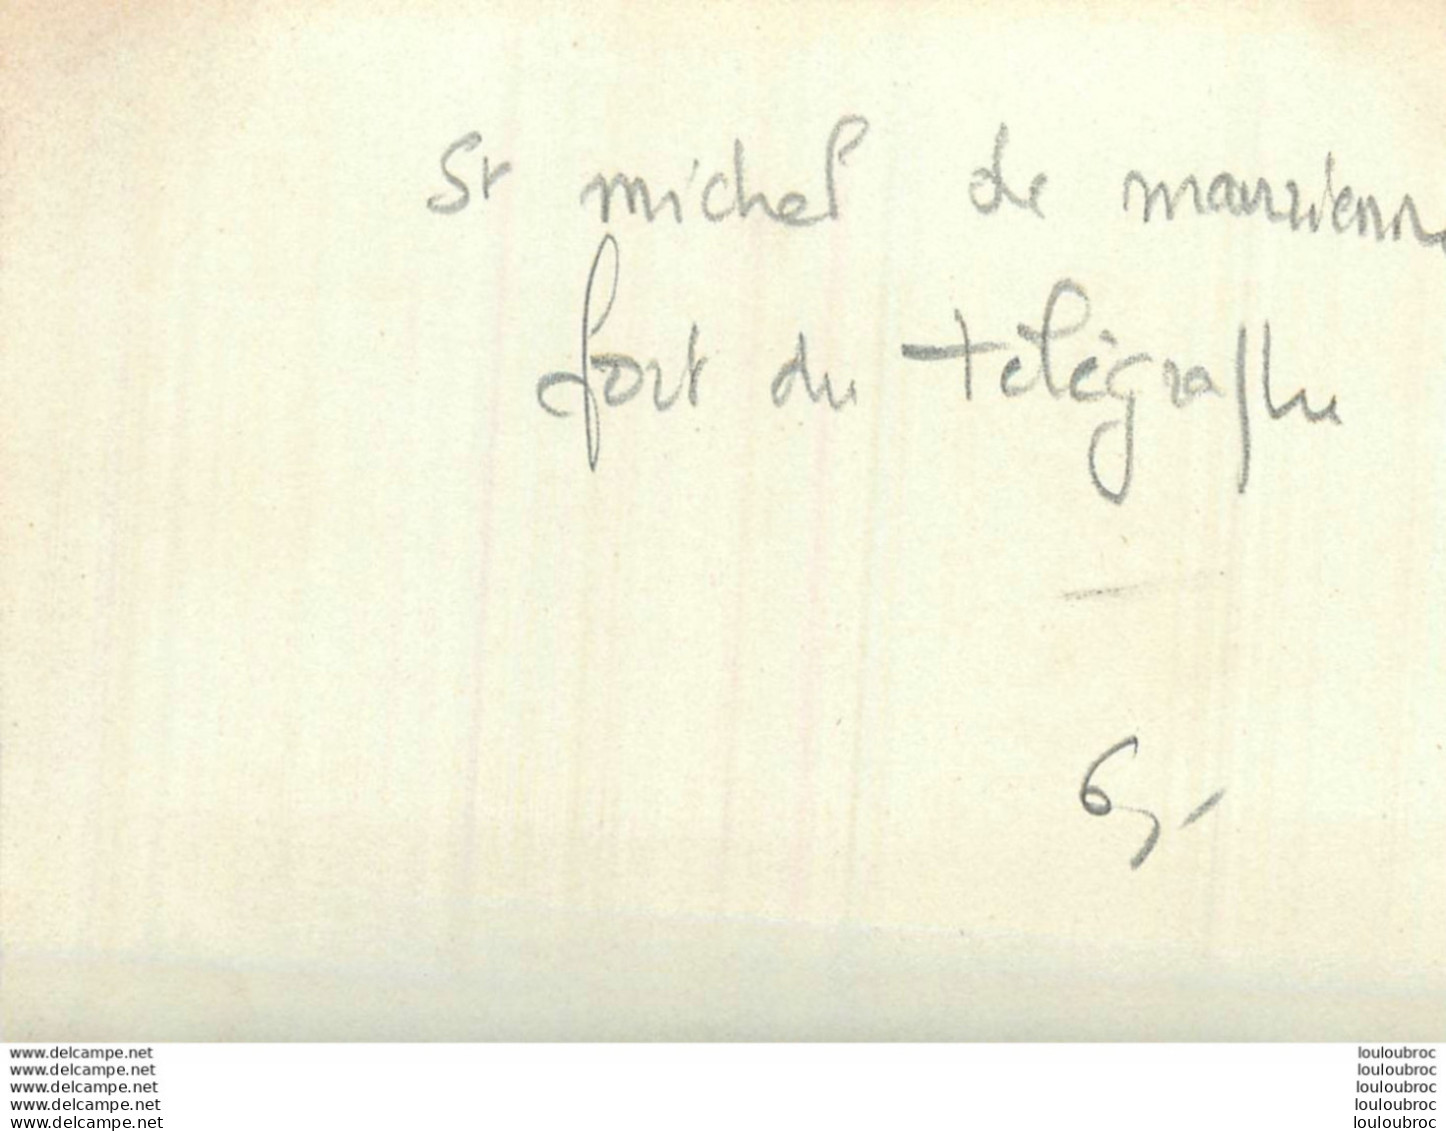 St michel de maurienne
fort du télégraphe
6,-
www.delcampe.net
www.delcampe.net
www.delcampe.net
www.delcampe.net
www.delcampe.net
louloubroc
louloubroc
louloubroc
louloubroc
louloubroc